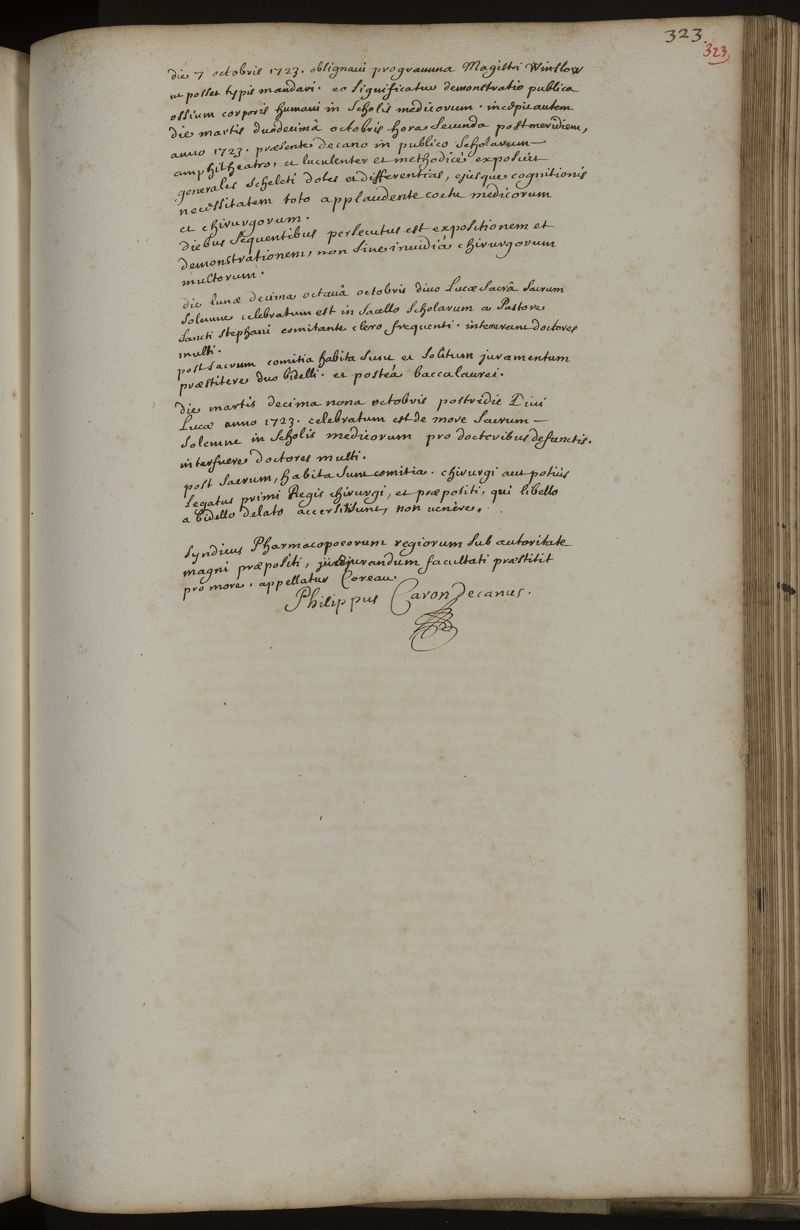 323.
323
die 7 octobris 1723. obsignavi programma Magistri Winslow
ut posset typis mandari. eo significatur demonstratio publica
ossium corporis humani in scholis medicorum. incepit autem
die martis duodecimâ octobris hora secunda postmeridiem,
anno 1723. præsente decano in publico scholarum —
amphitheatro, et luculenter et methodicè exposuit
generales scheleti dotes et differentias, ejusque cognitionis
necessitatem toto applaudente coetu medicorum
et chirurgorum.
diebus sequentibus persecutus est expositionem et
demonstrationem, non sine invidiâ chirurgorum
multorum.
die lunæ decima octavâ octobris divo Lucæ sacrâ sacrum
solemne celebratum est in sacello scholarum a Pastore
sancti stephani comitante clero frequenti. intererant doctores
multi.
post sacrum comitia habita sunt et solitum juramentum
præstitere duo bidelli. et posteà baccalaurei.
die martis decima nona octobris postridie Divi
Lucæ anno 1723. celebratum est de more sacrum —
solemne in scholis medicorum pro doctoribus defunctis.
interfuere doctores multi.
post sacrum, habita sunt comitia. chirurgi aut potiùs
legatus primi Regis chirurgi, et præpositi, qui libello
a bidello delato accersitsunt, non venère.
syndicus Pharmacopoeorum regiorum sub autoritate
magni præpositi, jusjurandum facultati præstitit
pro more. appellatur Coreau.
Philippus Caron Decanus.